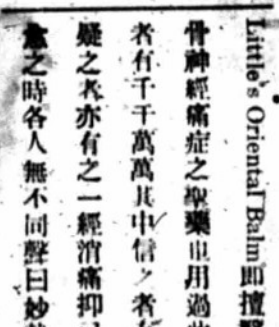 Little's Oriental Balm 即擅
骨神經痛症之聖藥也用過
者有千千萬萬其中信之者
疑之者亦有之一經消痛抑
之時各人無不同聲曰妙